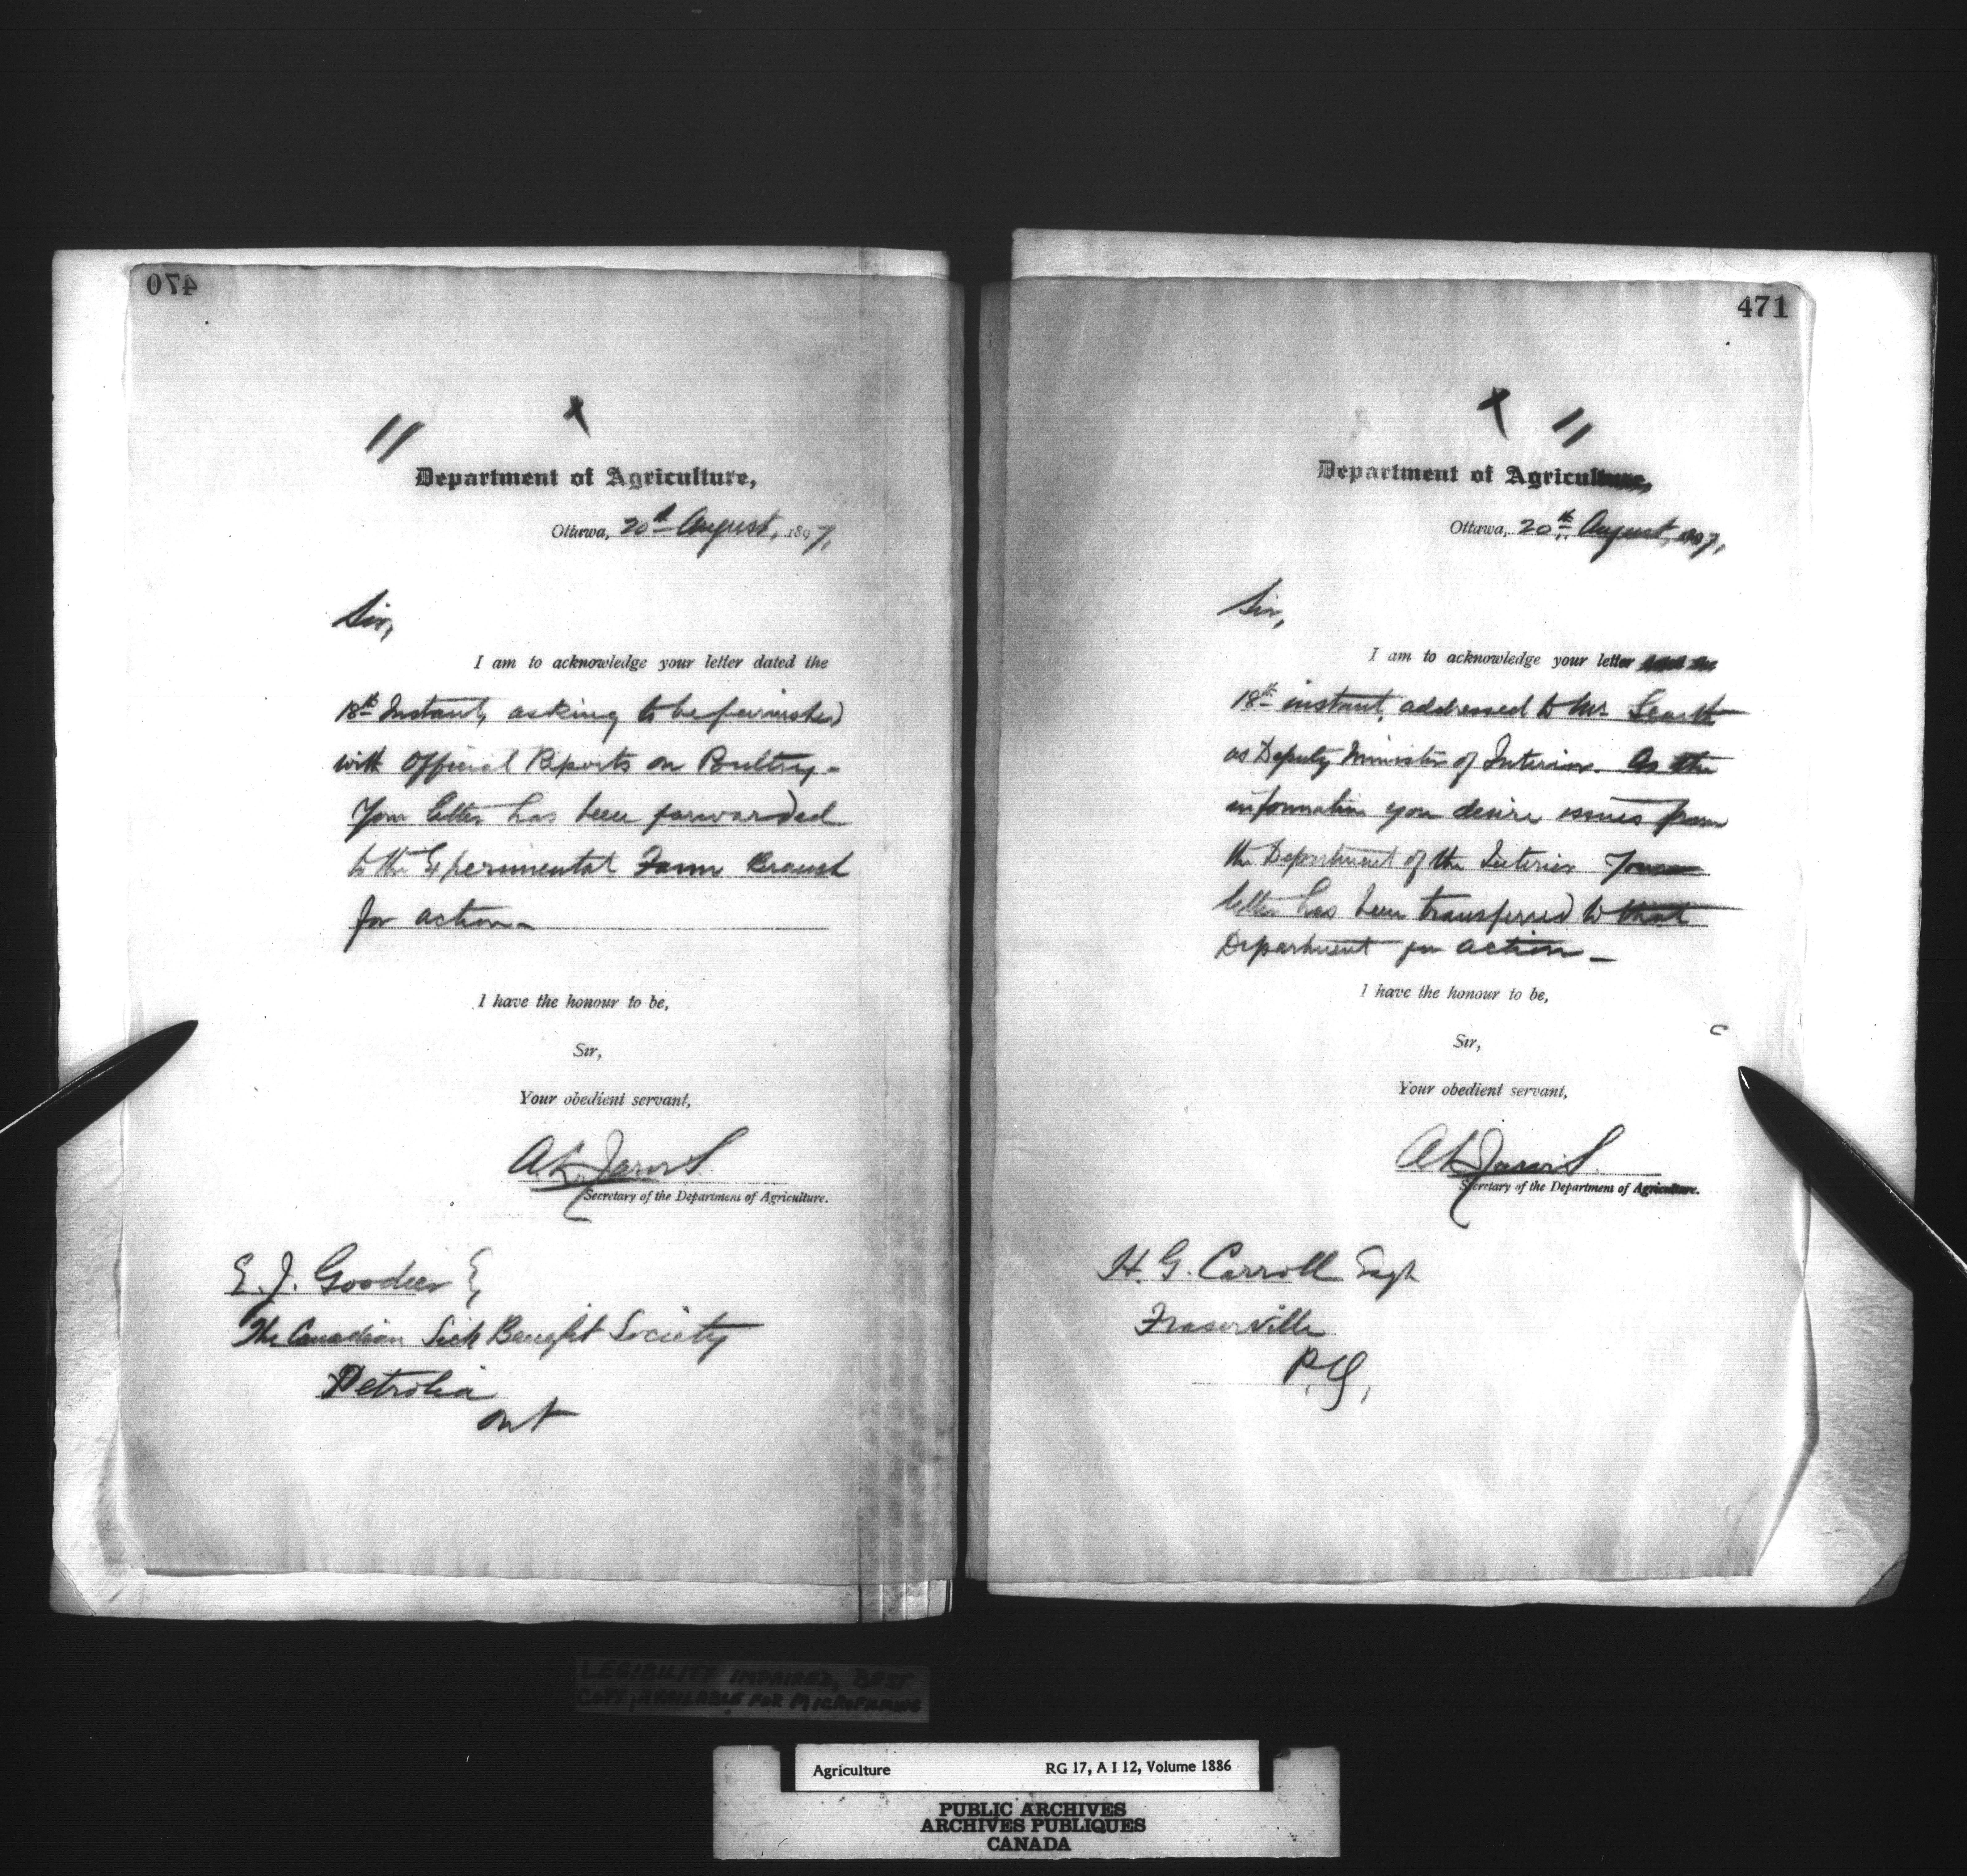 470
11 x
Department of Agriculture,
Ottawa, 20th August, 1897,
Sir,
I am to acknowledge your letter dated the
18th Instant, asking to be furnished
with Official Reports on Poultry-
Your letter has been forwarded
to the Experimental Farm Branch
for action-
I have the honour to be,
Sir,
Your obedient servant,
A.L. Jarvis.
Secretary of the Department of Agriculture.
E. J. Goodier E,
The Canadian Sick Benefit Society
Petrolia
Ont
471
x 11
Department of Agriculture,
Ottawa, 20th August, 1897,
Sir,
I am to acknowledge your letter dated the
18th instant, addressed to Mr. Scarth
as Deputy Minister of Interior. As the
information you desire issues from
the Department of the Interior Your
letter has been transferred to that
Department for action-
I have the honour to be,
Sir,
Your obedient servant,
A L Jarvis.
Secretary of the Department of Agriculture.
H. G. Carroll Esqr
Fraserville
P.Q,
LEGIBILITY IMPAIRED, BEST
COPY AVAILABLE FOR MICROFILMING
Agriculture RG 17, A I 12, Volume 1886
PUBLIC ARCHIVES
ARCHIVES PUBLIQUES
CANADA